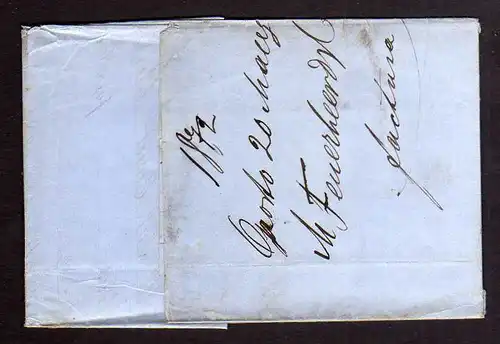 1872
Oporto 20 Março
M Feuerheerd Jr
factura